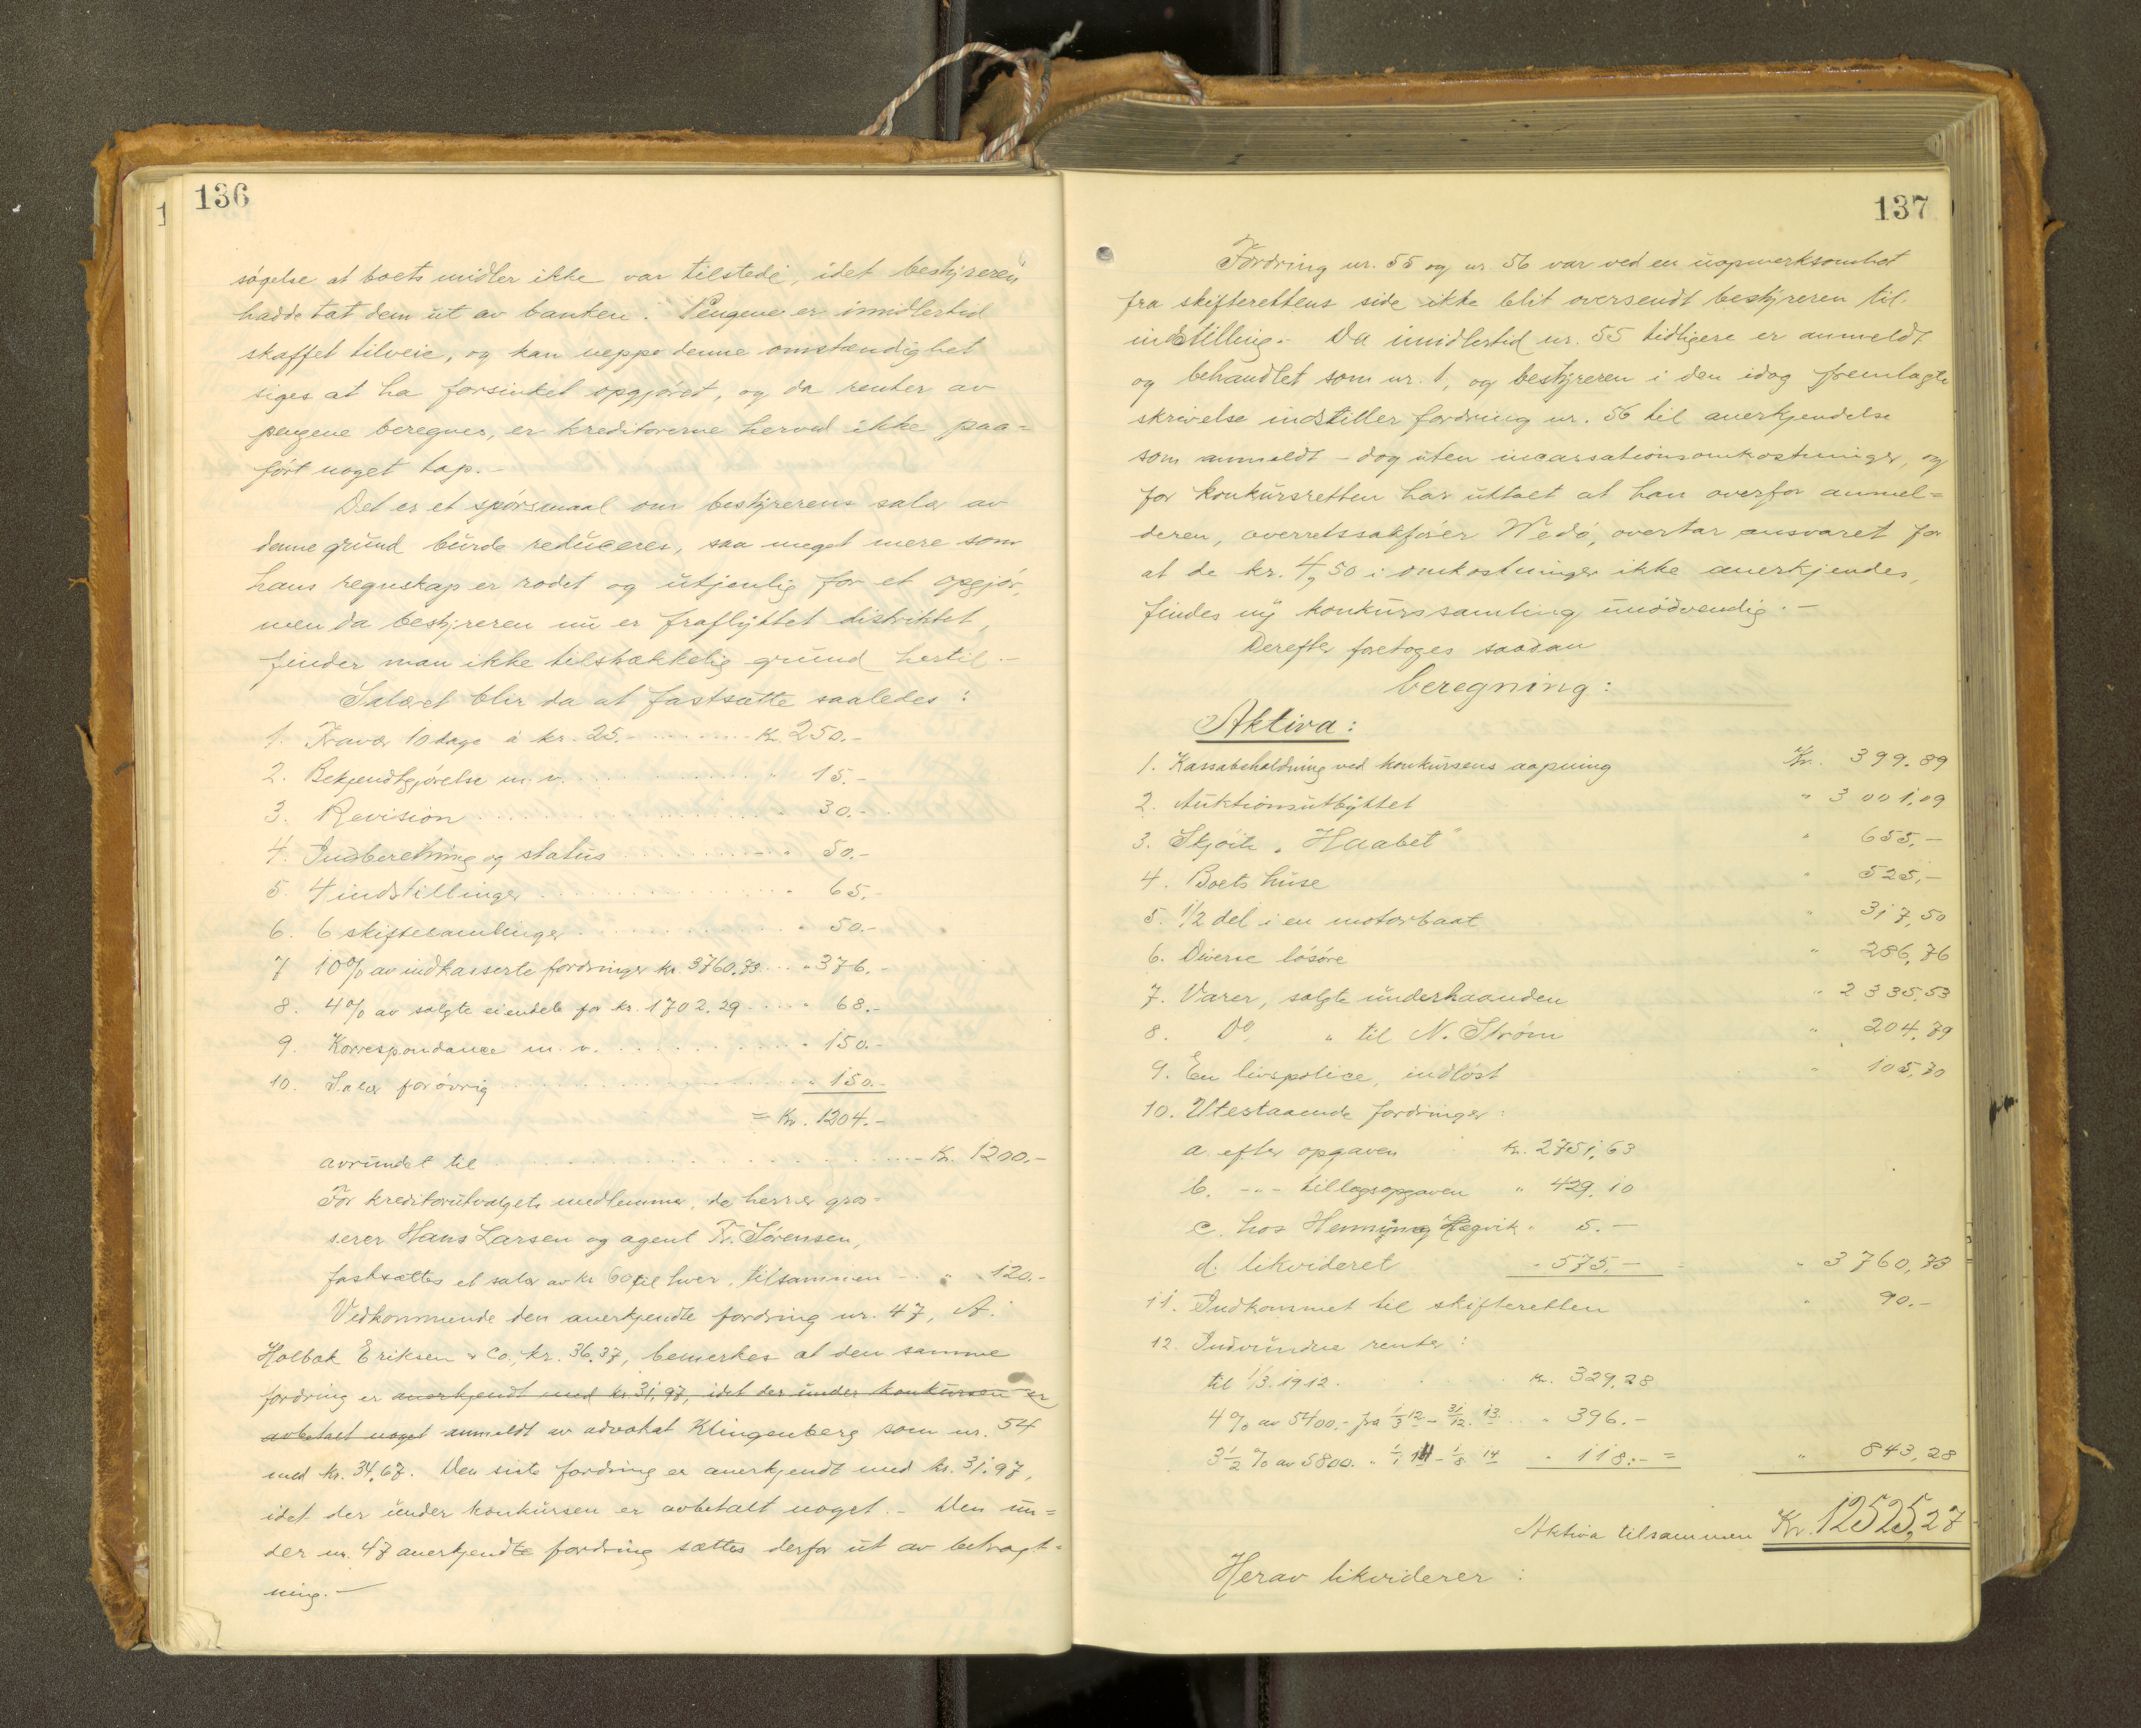 136
søgelse at boets midler ikke var tilstede, idet bestyreren
hadde tat dem ut av banken. Pengene er imidlertid
skaffet tilveie, og kan neppe denne omstændighet
siges at ha forsinket opgjøret, og da renter av
pengene beregnes, er kreditorerne herved ikke paa=
ført noget tap.-
Det er et spørsmaal om bestyrerens salær av
denne grund burde reduceres, saa meget mere som
hans regnskap er rodet og utjenlig for et opgjør,
men da bestyreren nu er fraflyttet distriktet,
finder man ikke tilstrækkelig grund hertil.-
Salæret blir da at fastsætte saaledes:
1. Fravær 10 dage à kr. 25.- Kr. 250.-
2. Bekjendtgjørelse m.v. " 15.-
3. Revision " 30.-
4. Indberetning og status " 50.-
5. 4 indstillinger " 65.-
6. 6 skiftesamlinger " 50.-
7 10% av indkasserte fordringer kr. 3760.73 " 376.-
8. 4% av solgte eiendele for kr. 1702.29 " 68.-
9. Korrespondance m.v. " 150.-
10. Salær forøvrig " 150.-
= Kr. 1204.-
avrundet til Kr. 1200.-
For kreditorutvalgets medlemmer, de herrer gros-
serer Hans Larsen og agent Fr. Sørensen,
fastsættes et salær av kr 60 til hver, tilsammen " 120.-
Vedkommende den anerkjendte fordring nr. 47, A.
Holbæk Eriksen & Co, kr. 36.37, bemerkes at den samme
fordring er anerkjendt med kr. 31,97, idet der under konkursen er
avbetalt noget anmeldt av advokat Klingenberg som nr. 54
med kr. 34,67. Den siste fordring er anerkjendt med kr. 31.97,
idet der under konkursen er avbetalt noget.- Den un=
der nr. 47 anerkjendte fordring sættes derfor ut av betragt-
ning.-
137
Fordring nr. 55 og nr. 56 var ved en uopmerksomhet
fra skifterettens side ikke blit oversendt bestyreren til
indstilling.- Da imidlertid nr. 55 tidligere er anmeldt
og behandlet som nr. 1, og bestyreren i den idag fremlagte
skrivelse indstiller fordring nr. 56 til anerkjendelse
som anmeldt - dog uten incassationsomkostninger, og
for konkursretten har uttalt at han overfor anmel=
deren, overretssakfører Wedø, overtar ansvaret for
at de kr. 4,50 i omkostninger ikke anerkjendes,
findes ny konkurssamling unødvendig.-
Derefter foretoges saadan
beregning:
Aktiva:
1. Kassabeholdning ved konkursens aapning Kr. 399.89
2. Auktionsutbyttet " 3001,09
3. Skjøite "Haabet" " 655,-
4. Boets huse " 525,-
5. 1/2 del i en motorbaat " 317,50
6. Diverse løsøre " 286,76
7. Varer, solgte underhaanden " 2335,53
8. Do, " til N. Strøm " 204,79
9. En livspolice, indløst " 105,70
10. Utestaaende fordringer:
a. efter opgaven kr. 2751,63
b. -"- tillægsopgaven " 429,10
c. hos Henning Hegvik " 5.-
d. likvideret " 575,- = " 3760,73
11. Indkommet til skifteretten " 90.-
12. Indvundne renter:
til 1/3.1912. kr. 329,28
4% av 5400.- fra 1/3 12 - 31/12. 13 " 396.-
3 1/2 % av 5800. " 1/1 14 - 1/8 14 " 118.- = " 843,28
Aktiva tilsammen Kr. 12525,27
Herav likviderer: